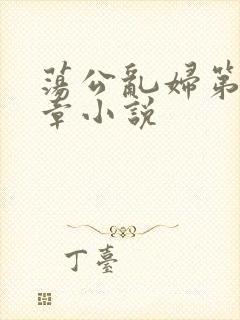 蕩公亂婦第
章小說
丁臺